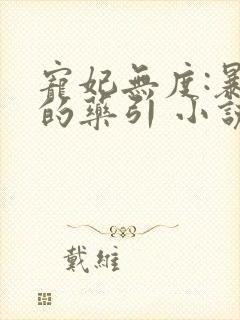 寵妃無度:暴
的藥引 小說
戴維